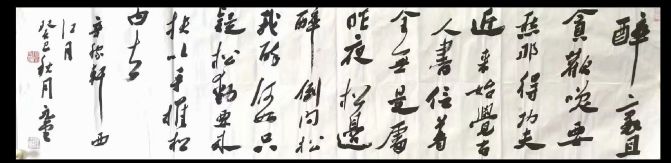 醉裏且
貪歡咲要
愁那得功夫
近来始覺古
人書信着
全無是處
昨夜松邊
醉倒问松
我醉何如只
疑松動要来
扶以手推松
曰去
辛稼軒西
江月
癸巳秋月